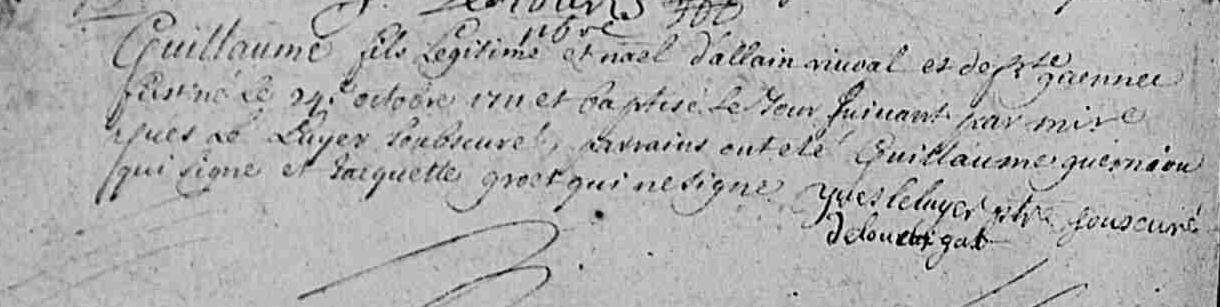 ptbre
Guillaume fils Legitime et nāel d'allain riuoal et de fr.te guennec
fust né Le 24.e octobre 1711 et baptisé Le Jour suiuant par mire
yues Le Luyer soubscuré, parrains ont eté Guillaume guernéou
qui signe et Jacquette groet qui ne signe
yues le luyer ptre souscuré
de louargat